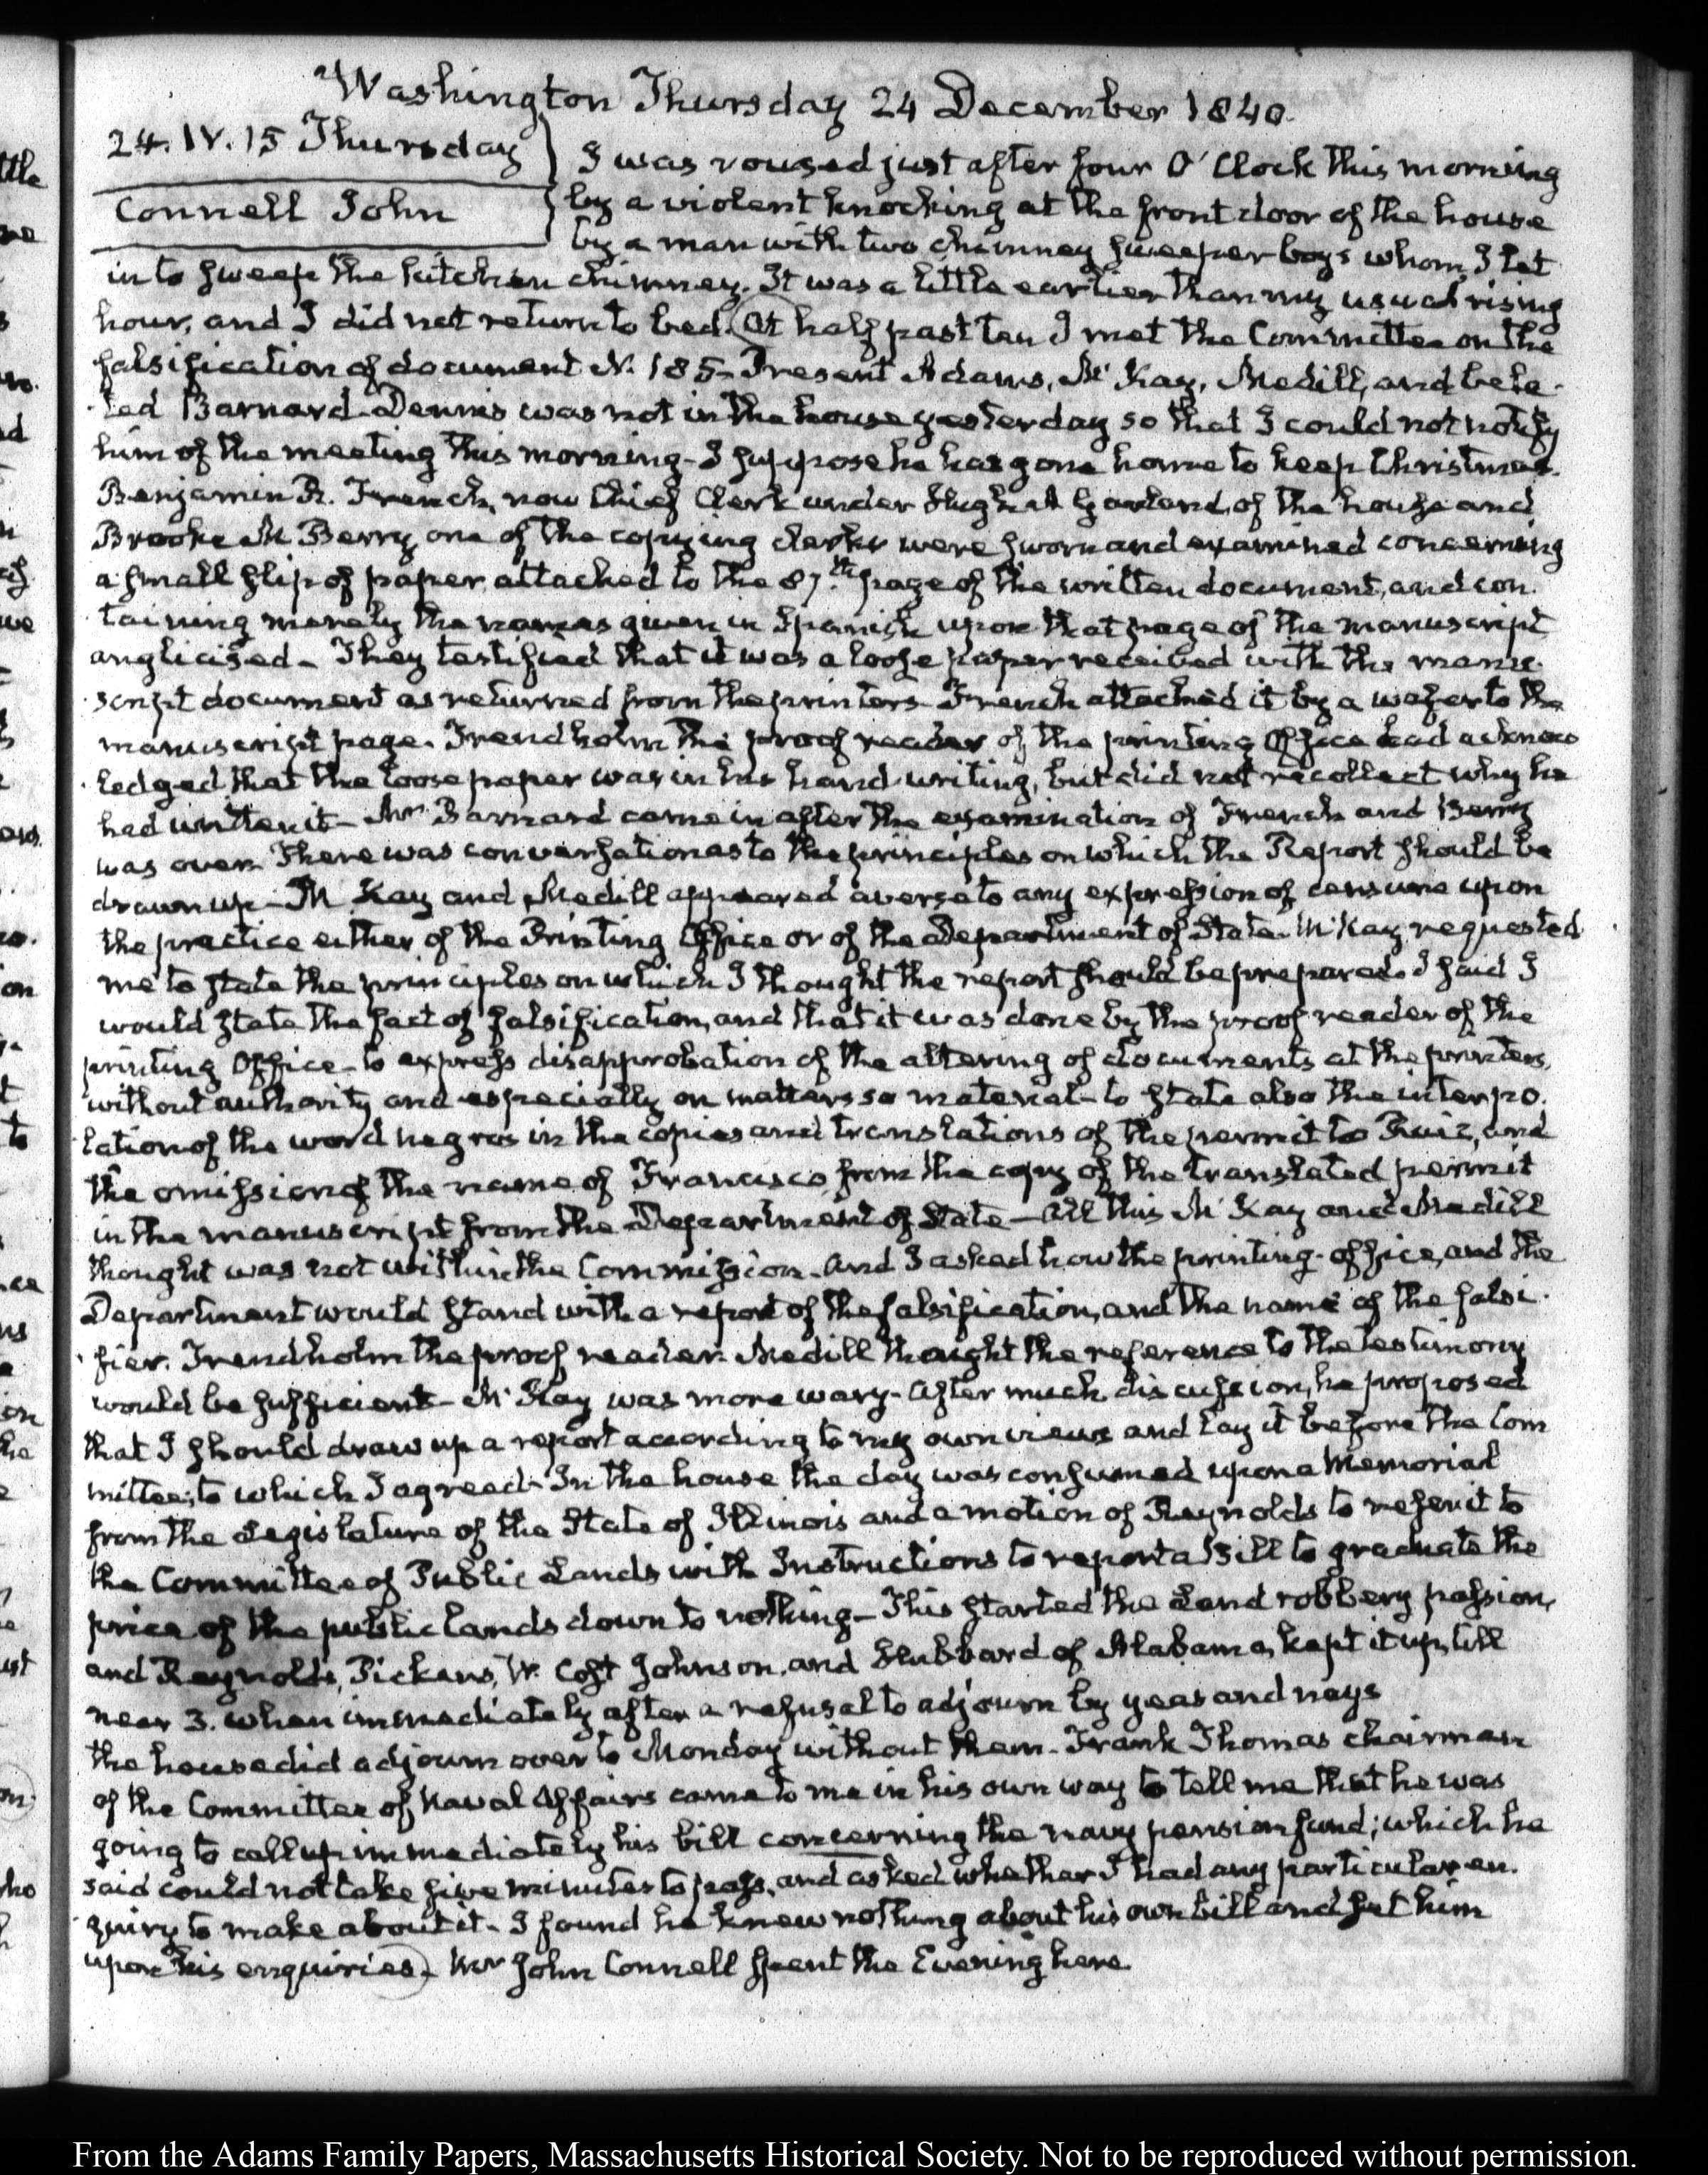 Washington Thursday 24 December 1840.
24. IV. 15 Thursday
Connell John
I was roused just after four O'Clock this morning
by a violent knocking at the front door of the house
by a man with two chimney sweeper boys whom I let
in to sweep the kitchen chimney. It was a little earlier than my usual rising
hour, and I did not return to bed. At half past ten I met the Committee on the
falsification of document N. 185. Present Adams, Mc Kay, Medill, and bela-
-ted Barnard. Dennis was not in the house yesterday so that I could not notify
him of the meeting this morning- I suppose he has gone home to keep Christmas.
Benjamin B. French, now Chief Clerk under Hugh A Garland, of the house and
Brooke M Berry one of the copying clerks were sworn and examined concerning
a small slip of paper attached to the 87.th page of the written document, and con-
taining merely the names given in Spanish upon that page of the manuscript
anglicised- They testified that it was a loose paper received with the manu-
-script document as returned from the printers- French attached it by a wafer to the
manuscript page. Trendholm the proof reader of the printing Office had acknow
-ledged that the loose paper was in his hand-writing, but did not recollect why he
had written it- Mr Barnard came in after the examination of French and Berry
was over. There was conversation as to the principles on which the Report should be
drawn up- Mc Kay and Medill appeared averse to any expression of censure upon
the practice either of the Printing Office or of the Department of State. McKay requested
me to state the principles on which I thought the report should be prepared. I said I
would state the fact of falsification, and that it was done by the proof reader of the
printing Office- to express disapprobation of the altering of documents at the printers,
without authority and especially on matters so material- to state also the interpo-
lation of the word negros in the copies and translations of the permit to Ruiz, and
the omission of the name of Francisco from the copy of the translated permit
in the manuscript from the Department of State- All this Mc Kay and Medill
thought was not within the Commission. And I asked how the printing-office, and the
Department would stand with a report of the falsification, and the name of the falsi-
-fier. Trendholm the proof reader. Medill thought the reference to the testimony
would be sufficient- Mc Kay was more wary- After much discussion, he proposed
that I should draw up a report according to my own views and lay it before the Com
mittee; to which I agreed- In the house the day was consumed upon a Memorial
from the Legislature of the State of Illinois and a motion of Reynolds to refer it to
the Committee of Public Lands with Instructions to report a Bill to graduate the
price of the public lands down to nothing- This started the Land robbery passion,
and Reynolds, Pickens, W. Cost Johnson, and Hubbard of Alabama, kept it up, till
near 3. when immediately after a refusal to adjourn by yeas and nays
the house did adjourn over to Monday without them- Frank Thomas chairman
of the Committee of Naval Affairs came to me in his own way to tell me that he was
going to call up immediately his bill concerning the navy pension fund; which he
said could not take five minutes to pass, and asked whether I had any particular en-
-quiry to make about it- I found he knew nothing about his own bill and put him
upon his enquiries- Mr John Connell spent the Evening here.
From the Adams Family Papers, Massachusetts Historical Society. Not to be reproduced without permission.